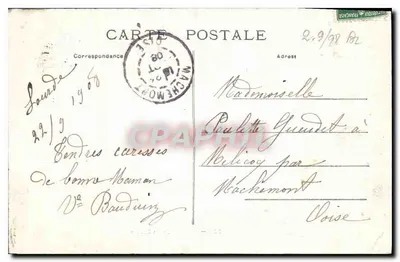 CARTE POSTALE
Correspondance
Adresse
2.9/08
MACHEMONT
OISE
08
Lourde
22/9 1908
Tendres caresses
de bonne Maman
Vᵉ Bauduin
Mademoiselle
Paulette Gueudet à
Mélicoq par
Machemont
Oise
CPARAMA